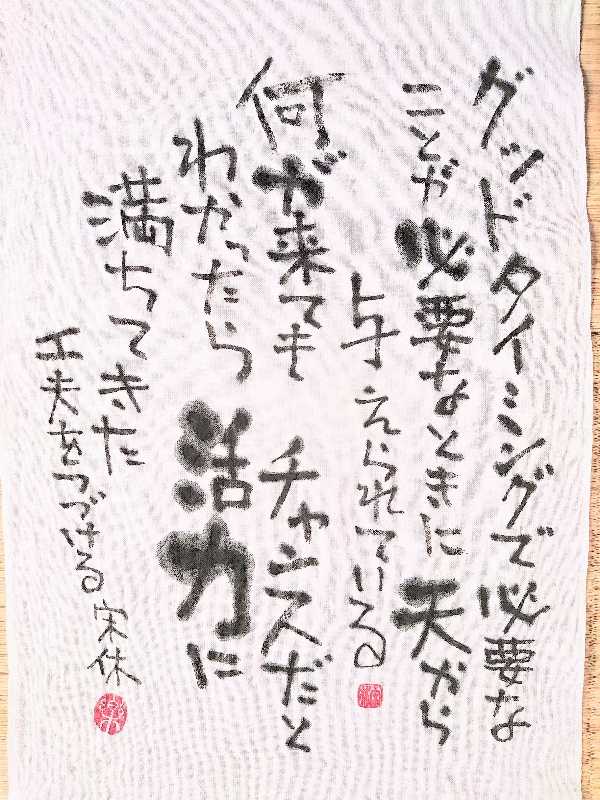 グッドタイミングで必要な
ことが必要なときに天から
与えられている
何が来てもチャンスだと
わかったら活力に
満ちてきた
工夫をつづける
宋休